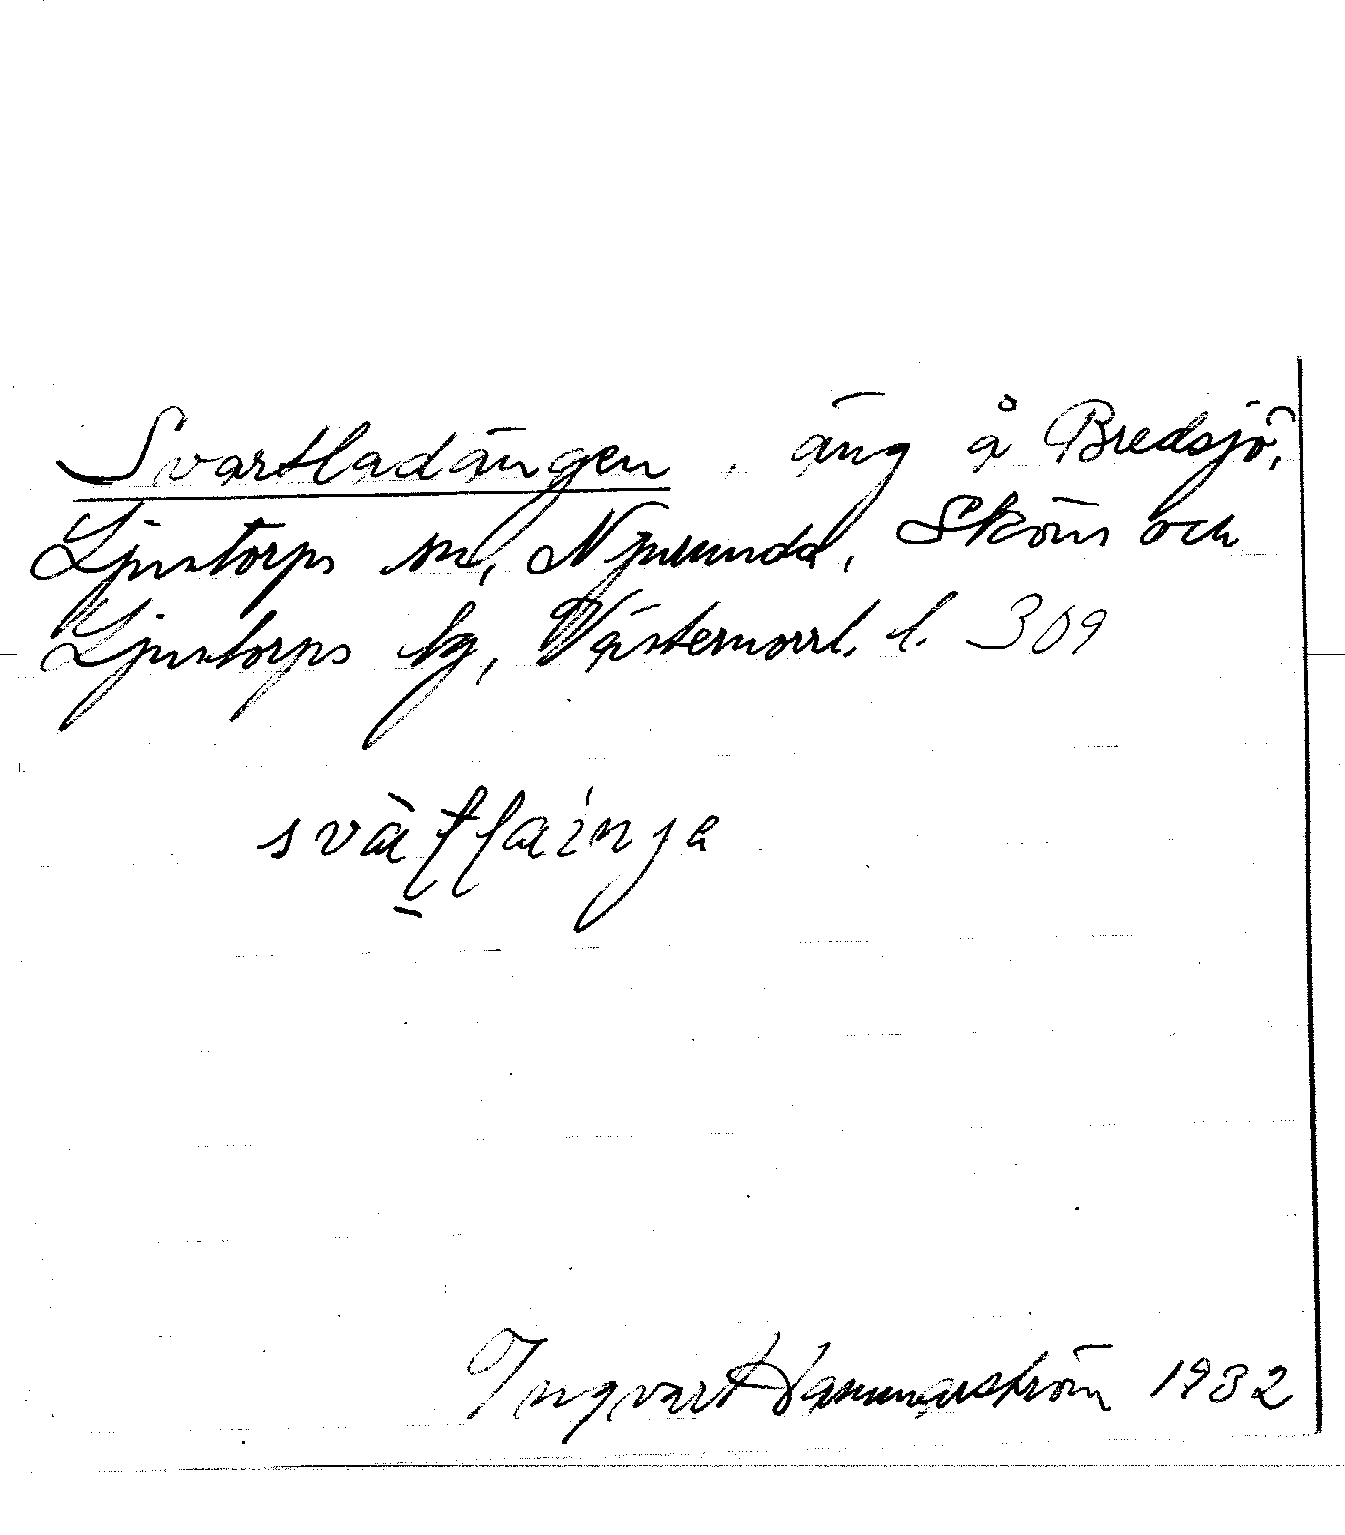 Svartladängen, äng å Bredsjö,
Ljustorps sn, Njurunda, Sköns och
Ljustorps tg, Västernorrl. l. 309
Ingvart Hammarström 1932